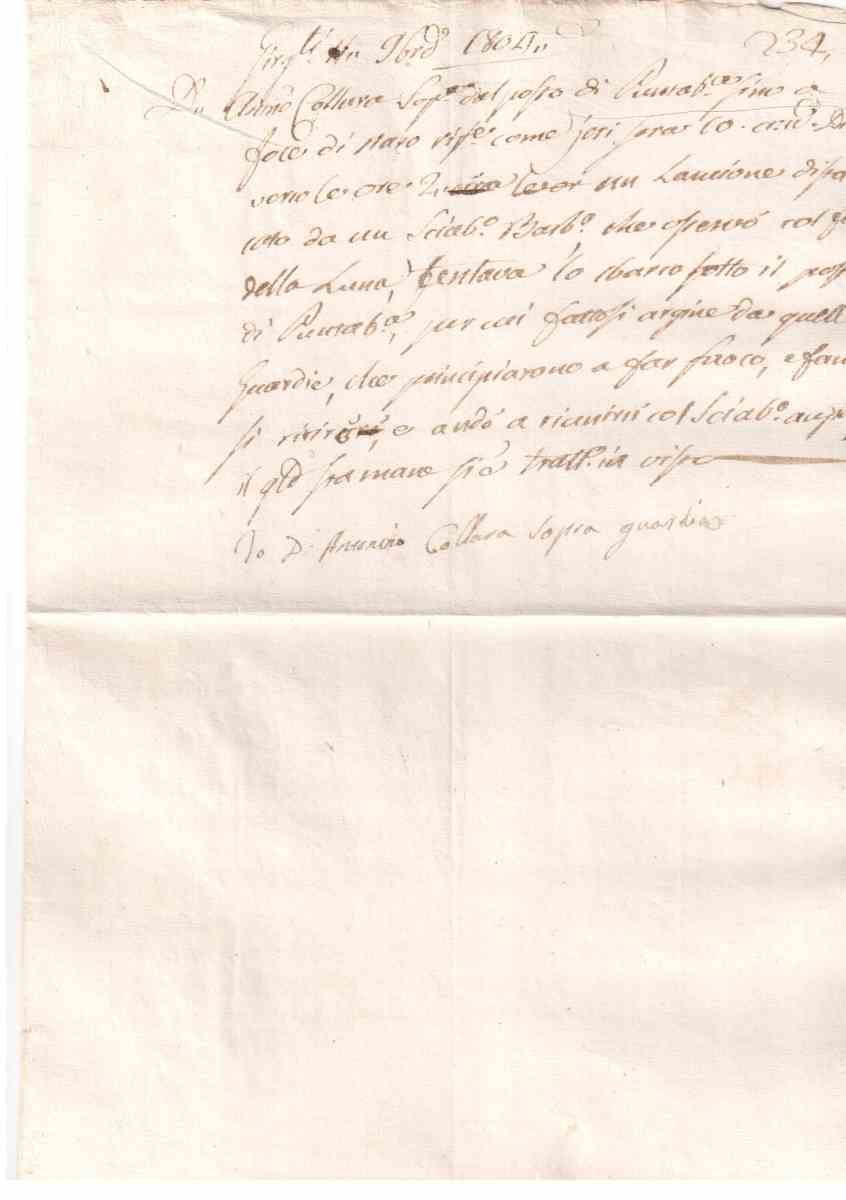 Girg.ti 11 9bre 1804
234
D.n Ant.no Collura Sop.a del posto di Puntab.ca sino a
foce di Naro rif.e come jeri sera
verso le ore 2 un Lancione dista
cato da un Sciab.o Barb.o che osservò col
della Luna, tentava lo sbarco sotto il pos
di Puntab.a, per cui fattosi argine da quell
Guardie, che principiarono a far fuoco, e
si ritirò, e andò a riunirsi col Sciab.o
il q.le stamane si è tratt. in vista
Io D. Antonino Collura sopra guardia